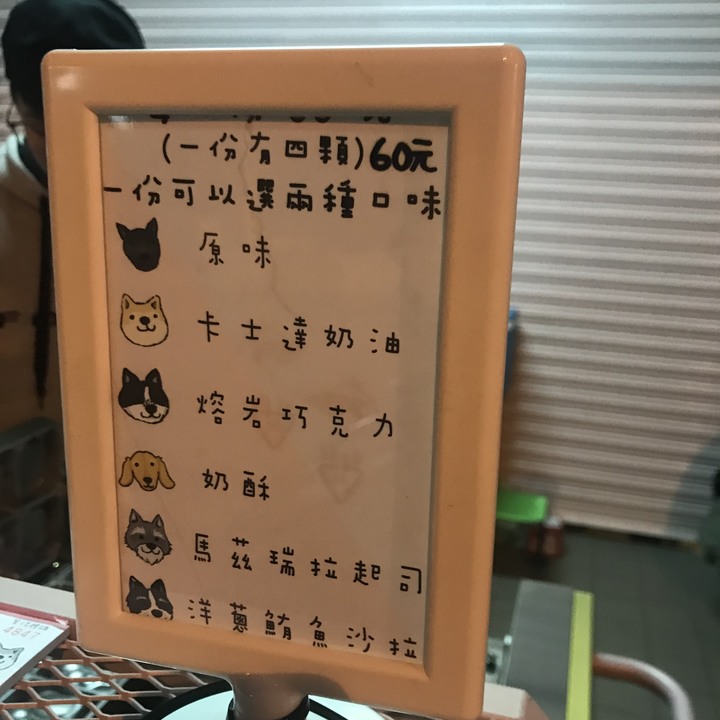 (一份有四顆)60元
一份可以選兩種口味
原味
卡士達奶油
熔岩巧克力
奶酥
馬茲瑞拉起司
洋蔥鮪魚沙拉
4847